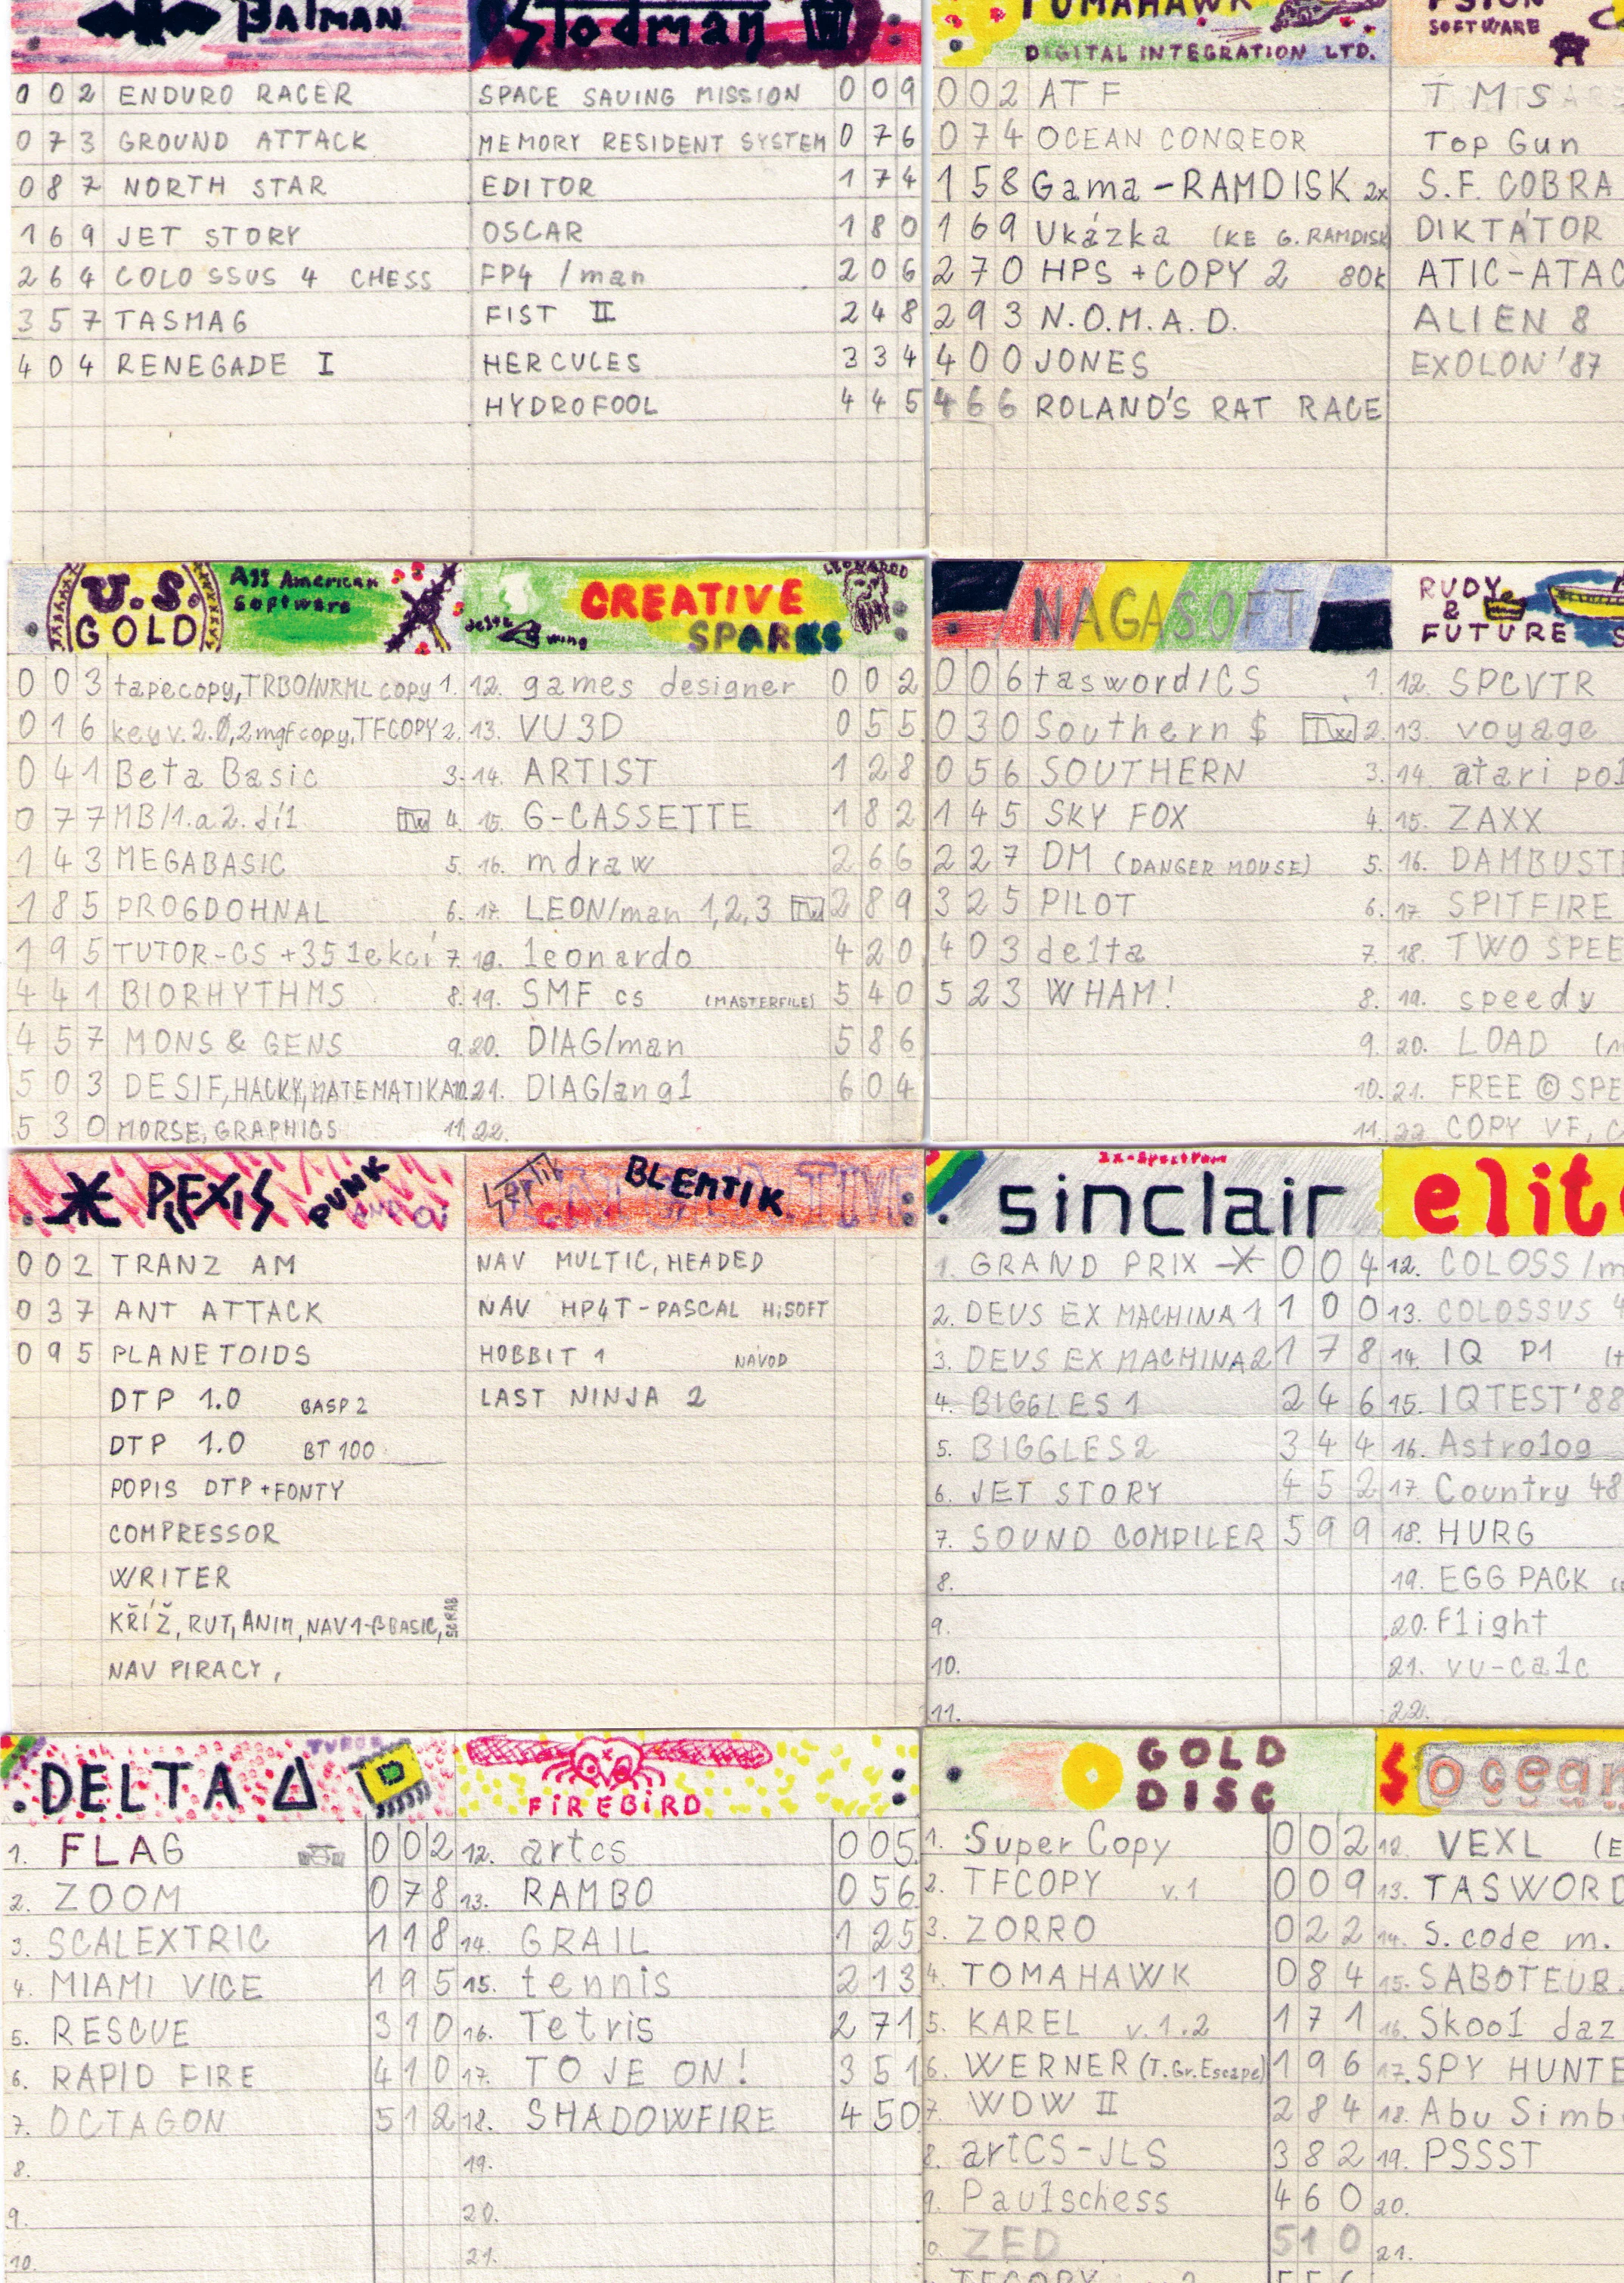 Batman
002 ENDURO RACER
073 GROUND ATTACK
087 NORTH STAR
169 JET STORY
264 COLOSSUS 4 CHESS
357 TASMAG
404 RENEGADE I
Stodman
SPACE SAVING MISSION 009
MEMORY RESIDENT SYSTEM 076
EDITOR 174
OSCAR 180
FP4 /man 206
FIST II 248
HERCULES 334
HYDROFOOL 445
TOMAHAWK
DIGITAL INTEGRATION LTD.
002 ATF
074 OCEAN CONQEOR
158 Gama-RAMDISK 2x
169 Ukázka (KE G.RAMDISK
270 HPS +COPY 2 80k
293 N.O.M.A.D.
400 JONES
466 ROLAND'S RAT RACE
PSION
SOFTWARE
TMS
Top Gun
S.F. COBRA
DIKTÁTOR
ATIC-ATAC
ALIEN 8
EXOLON'87
U.S.
GOLD
All American
Software
003 tapecopy,TRBO/NRML copy 1.
016 key v.2.0,2mgfcopy,TFCOPY 2.
041 Beta Basic 3.
077 MB/1.a2.díl Tw 4.
143 MEGABASIC 5.
185 PROGDOHNAL 6.
195 TUTOR-CS +35 lekcí 7.
441 BIORHYTHMS 8.
457 MONS & GENS 9.
503 DESIF,HACKY,MATEMATIKA 10.
530 MORSE,GRAPHICS 11.
LEONARDO
CREATIVE
SPARKS
delta wing
12. games designer 002
13. VU 3D 055
14. ARTIST 128
15. G-CASSETTE 182
16. mdraw 266
17. LEON/man 1,2,3 Tw 289
18. leonardo 420
19. SMF cs (MASTERFILE) 540
20. DIAG/man 586
21. DIAG/angl 604
22.
NAGASOFT
006 tasword/CS 1.
030 Southern $ Tx 2.
056 SOUTHERN 3.
145 SKY FOX 4.
227 DM (DANGER MOUSE) 5.
325 PILOT 6.
403 delta 7.
523 WHAM! 8.
9.
10.
11.
RUDY
&
FUTURE
12. SPCVTR
13. voyage
14. atari pol
15. ZAXX
16. DAMBUST
17. SPITFIRE
18. TWO SPEE
19. speedy
20. LOAD
21. FREE © SPE
22. COPY VF, C
PLEXIS PUNK
AND Oi
002 TRANZ AM
037 ANT ATTACK
095 PLANETOIDS
DTP 1.0 BASP2
DTP 1.0 BT100
POPIS DTP+FONTY
COMPRESSOR
WRITER
KŘÍŽ, RUT, ANIM, NAV1-BBASIC, SCRAB
NAV PIRACY,
BLEMTIK
TIME
NAV MULTIC, HEADED
NAV HP4T-PASCAL HiSOFT
HOBBIT 1 NÁVOD
LAST NINJA 2
ZX-Spectrum
sinclair
1. GRAND PRIX 004
2. DEUS EX MACHINA 1 100
3. DEUS EX MACHINA 2 178
4. BIGGLES 1 246
5. BIGGLES 2 344
6. JET STORY 452
7. SOUND COMPILER 599
8.
9.
10.
11.
elit
12. COLOSS/m
13. COLOSSUS 4
14. IQ P1
15. IQTEST'88
16. Astrolog
17. Country 48
18. HURG
19. EGG PACK
20. Flight
21. vu-calc
22.
TURBO
DELTA Δ
1. FLAG 002
2. ZOOM 078
3. SCALEXTRIC 118
4. MIAMI VICE 195
5. RESCUE 310
6. RAPID FIRE 410
7. OCTAGON 512
8.
9.
10.
FiREBiRD
12. artcs 005
13. RAMBO 056
14. GRAIL 125
15. tennis 213
16. Tetris 271
17. TO JE ON! 351
18. SHADOWFIRE 450
19.
20.
21.
GOLD
DISC
1. Super Copy 002
2. TFCOPY v.1 009
3. ZORRO 022
4. TOMAHAWK 084
5. KAREL v.1.2 171
6. WERNER (T.Gr.Escape) 196
7. WDW II 284
8. artCS-JLS 382
9. Paulschess 460
0. ZED 510
TFCOPY 2 556
ocean
12. VEXL (E
13. TASWORD
14. S.code m.
15. SABOTEUR
16. Skool daz
17. SPY HUNTE
18. Abu Simb
19. PSSST
20.
21.